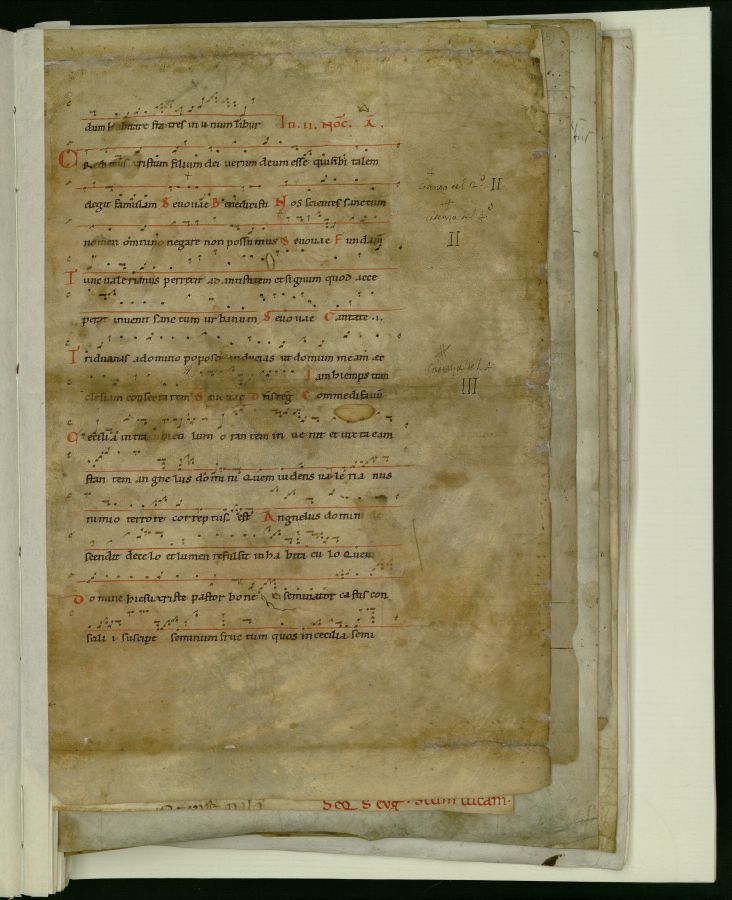 dum habitare fratres in unum Tibur In .ii. noc. A.
Credimus xristum filium dei verum deum esse qui sibi talem
elegit famulam Seuouae Benedixisti Nos scientes sanctum
nomen omnino negare non possumus Seuouae Fundam
Tunc valerianus perrexit ad antistitem et signum quod acce
perat invenit sanctum urbanum Seuouae Cantate .i.
Triduanas a domino poposci inducias ut domum meam ec
Iam hiemps tran
clesiam consecrarem Seuouae Dns reg Commedi favum
Cecilia intra cubiculum orantem invenit et iuxta eam
stantem angnelus domini Quem videns valerianus
nimio terrore correptus est Angnelus domini de
scendit de celo et lumen refulsit in habitaculo Quem
Domine hiesu xriste pastor bone seminator castis con
scilii suscipe seminum fructum quos in cecilia semi
II
II
III